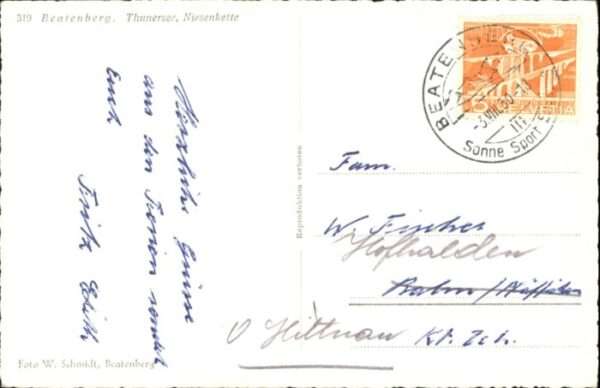 319 Beatenberg. Thunersee, Niesenkette
Herzliche Grüsse
aus den Ferien sendet
Euch
Fritz Edith
Reproduktion verboten
BEATENBERG
-3.VIII.50
Sonne Sport
HELVETIA
5
Fam.
W. Fischer
Hofhalden
Hittnau Kt. Zch.
Foto W. Schmidt, Beatenberg